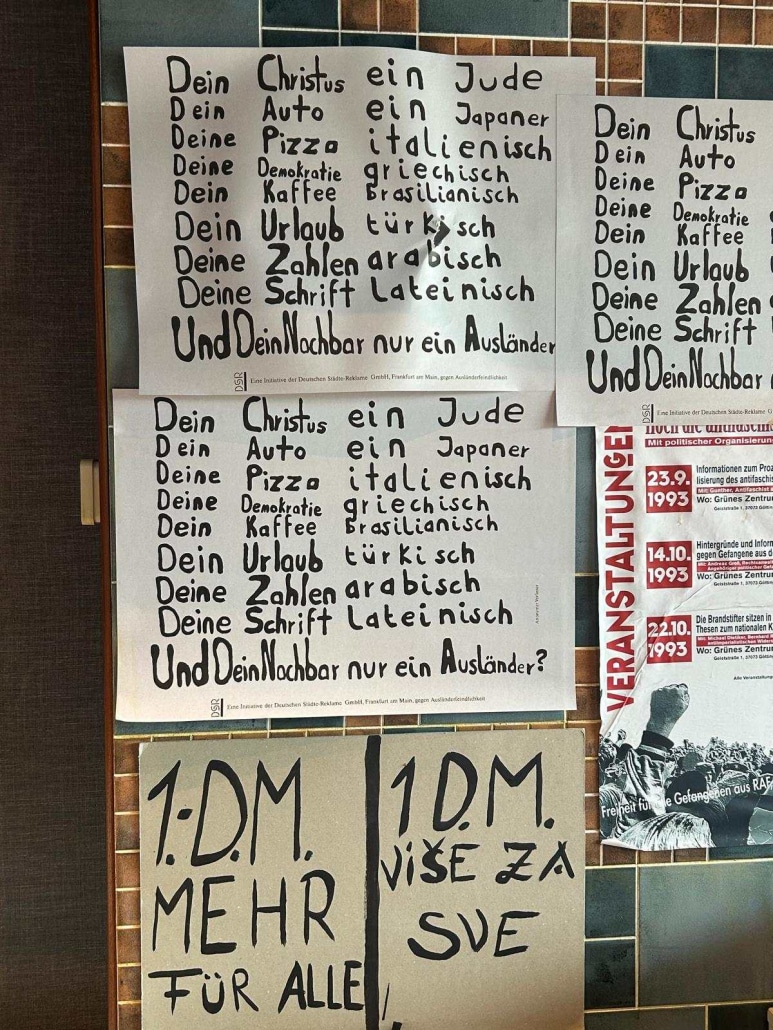 Dein Christus ein Jude
Dein Auto ein Japaner
Deine Pizza italienisch
Deine Demokratie griechisch
Dein Kaffee Brasilianisch
Dein Urlaub türkisch
Deine Zahlen arabisch
Deine Schrift Lateinisch
Und Dein Nachbar nur ein Ausländer
DSR Eine Initiative der Deutschen Städte-Reklame GmbH, Frankfurt am Main, gegen Ausländerfeindlichkeit
Dein Christus
Dein Auto
Deine Pizza
Deine Demokratie
Dein Kaffee
Dein Urlaub
Deine Zahlen
Deine Schrift
Und Dein Nachbar
DSR Eine Initiative der Deutschen Städte-Reklame G
Dein Christus ein Jude
Dein Auto ein Japaner
Deine Pizza italienisch
Deine Demokratie griechisch
Dein Kaffee Brasilianisch
Dein Urlaub türkisch
Deine Zahlen arabisch
Deine Schrift Lateinisch
Und Dein Nachbar nur ein Ausländer?
DSR Eine Initiative der Deutschen Städte-Reklame GmbH, Frankfurt am Main, gegen Ausländerfeindlichkeit
Mit politischer Organisierun
VERANSTALTUNGEN
23.9.
1993
Informationen zum Proz
lisierung des antifaschis
Wo: Grünes Zentru
14.10.
1993
Hintergründe und Inform
gegen Gefangene aus d
Wo: Grünes Zentru
22.10.
1993
Die Brandstifter sitzen in
Thesen zum nationalen K
Wo: Grünes Zentru
Alle Veranstaltung
Freiheit für die Gefangenen aus RAF
1.-D.M.
MEHR
FÜR ALLE
1 D.M.
VIŠE ZA
SVE